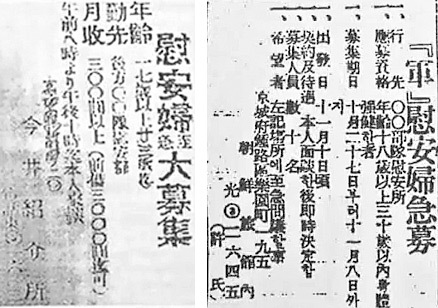 慰安婦至急大募集
年齢 一七歳以上廿三歳迄
勤先 後方〇〇隊慰安部
月收 三〇〇圓以上(前借三〇〇〇圓迄可)
午前八時より午後十時迄本人來談
今井紹介所
『軍』慰安婦急募
一、行先 〇〇部隊慰安所
一、應募資格 年齢十八歳以上三十歳以内身體
強健者
一、募集期日 十月二十七日より十一月八日
一、出發日 十一月十日頃
一、契約及待遇 本人面談後即時決定す
一、募集人員 數十名
一、希望者 左記場所に至急問議の事
京城府鍾路區樂園町一九五
朝鮮旅館内
光③二六四五
(許氏)